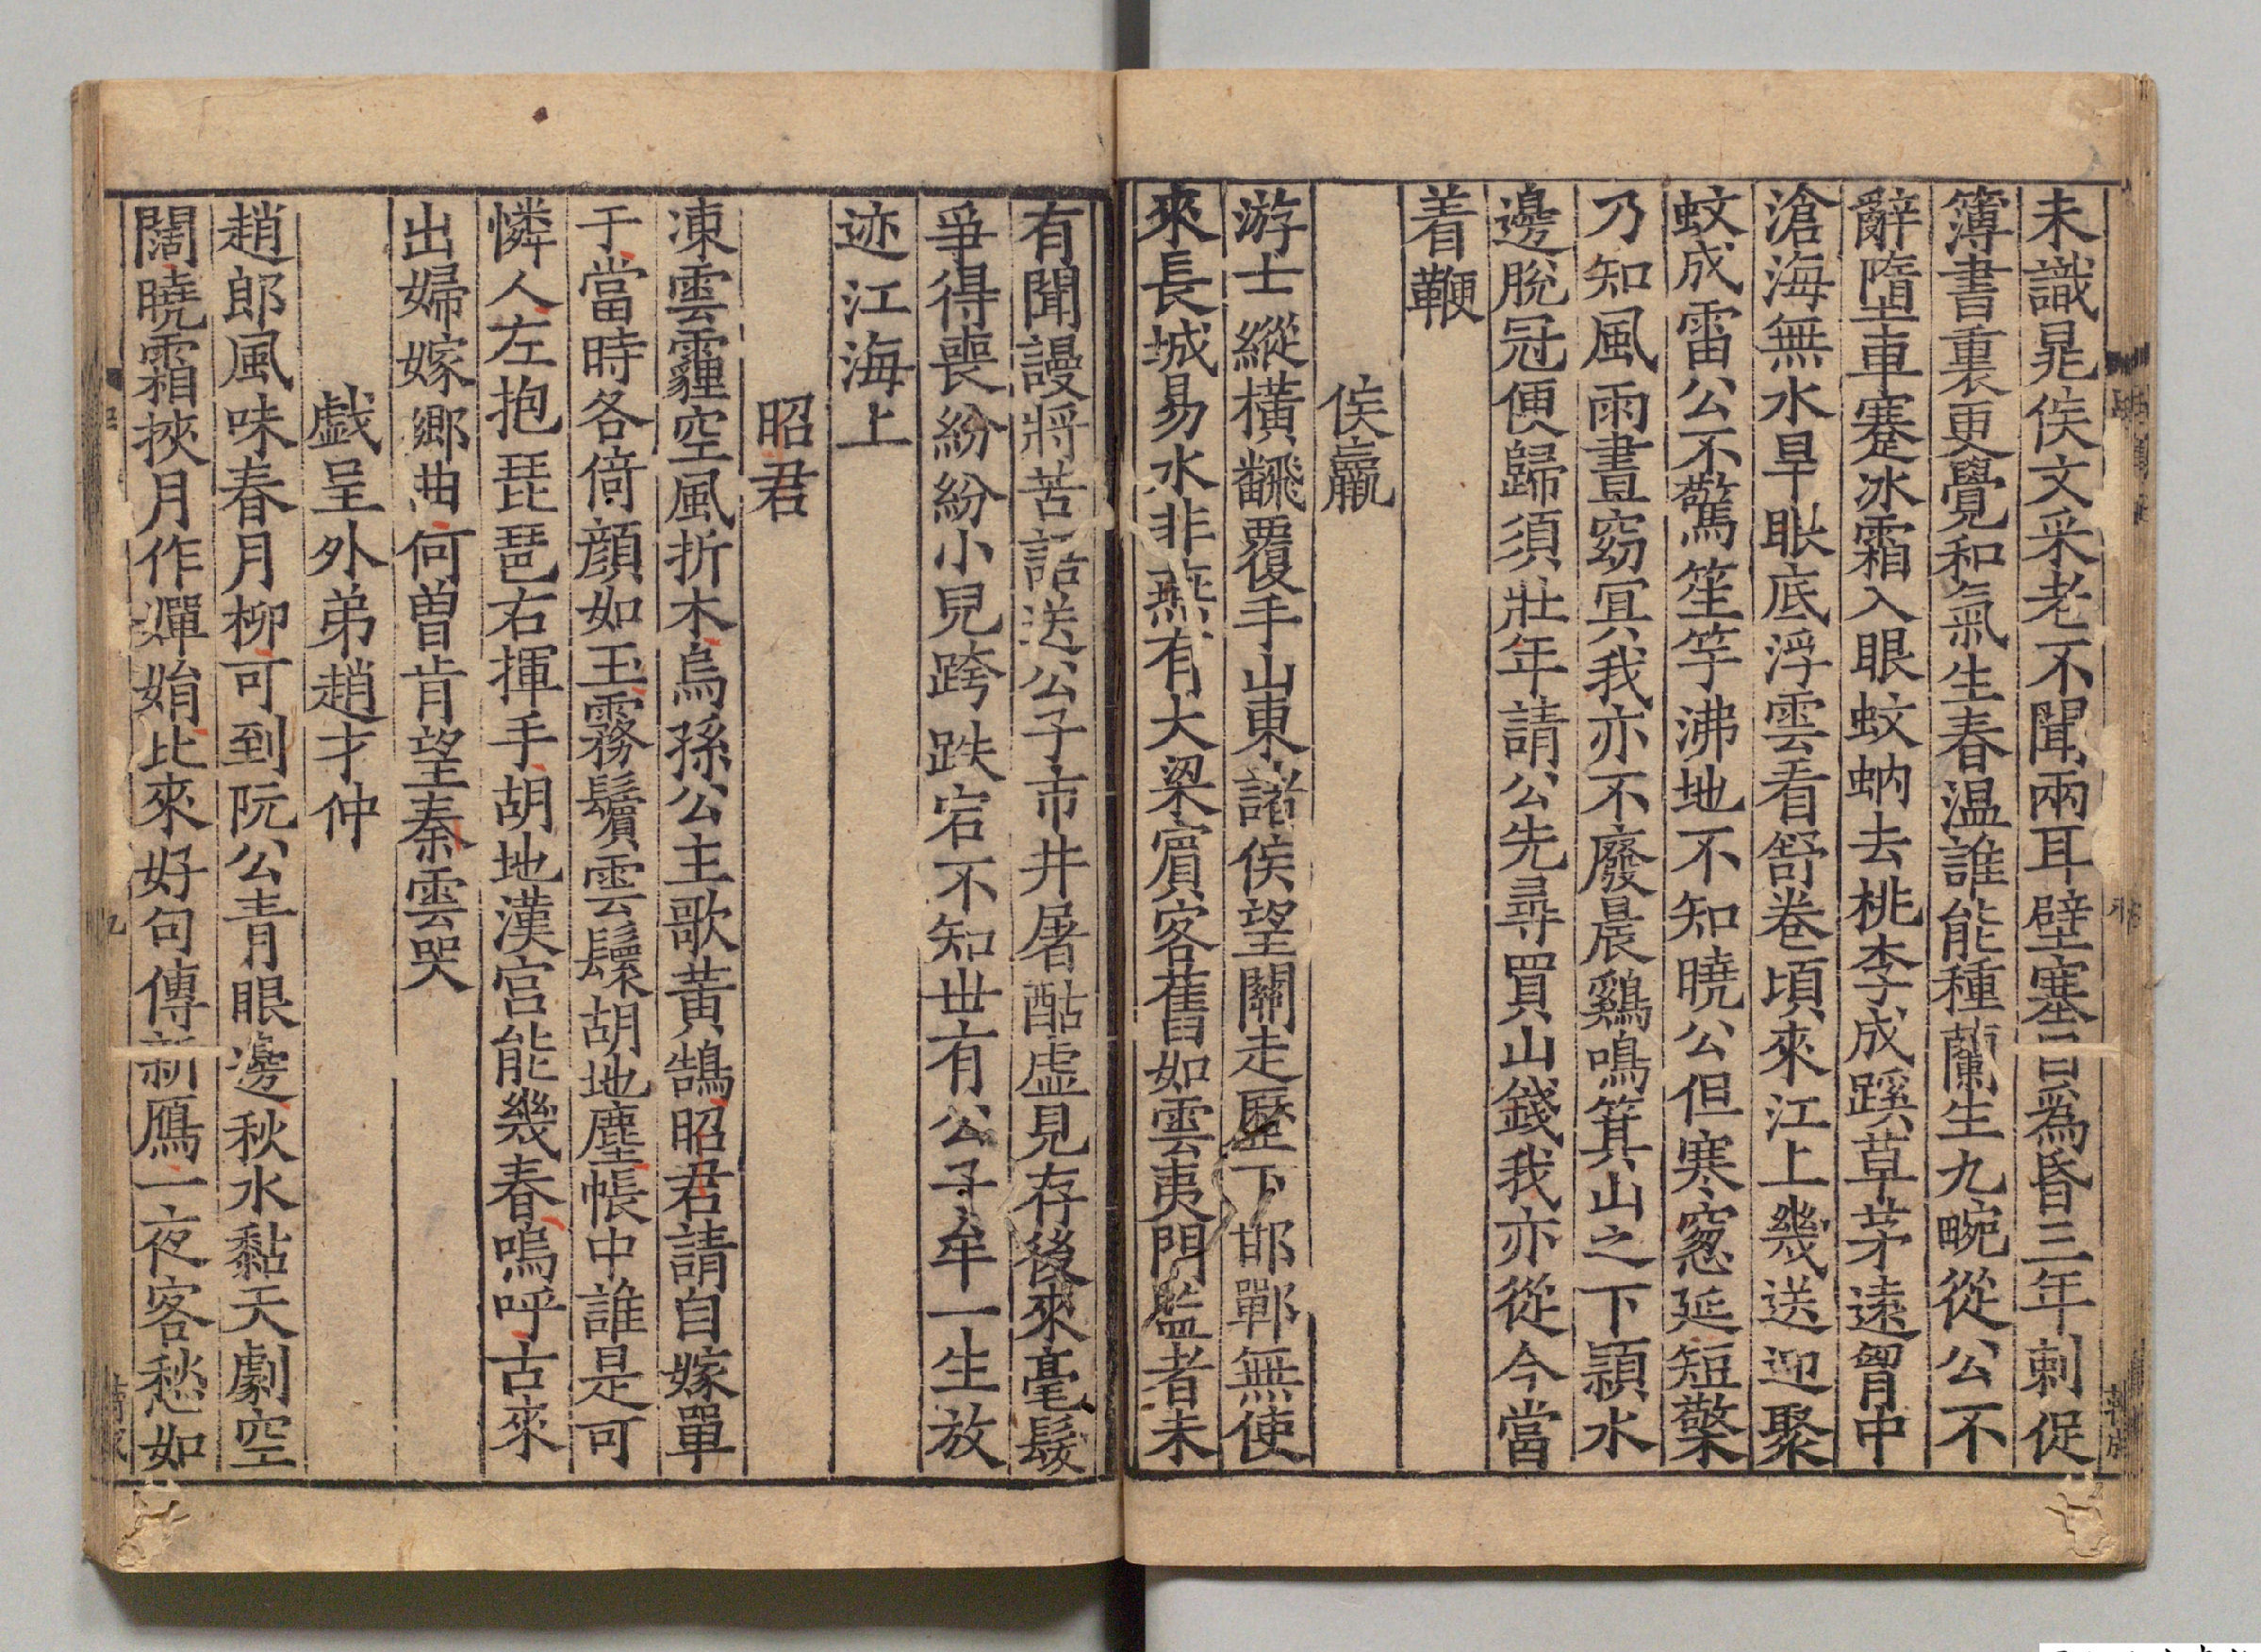 未識晁侯文采老不聞兩耳壁塞百爲昏三年刺促
簿書裏更覺和氣生春温誰能種蘭生九畹從公不
辭墮車蹇冰霜入眼蚊蚋去桃李成蹊草茅遠胷中
滄海無水旱眼底浮雲看舒卷頃來江上幾送迎聚
蚊成雷公不驚笙竽沸地不知曉公但寒窻延短檠
乃知風雨晝窈冥我亦不廢晨鷄鳴箕山之下潁水
邊脫冠便歸須壯年請公先尋買山錢我亦從今當
着鞭
侯嬴
游士縱橫飜覆手山東諸侯望關走歷下邯鄲無使
來長城易水非無有大梁賓客舊如雲夷門監者未
有聞謾將苦語送公子市井屠酤虛見存後來毫髮
爭得喪紛紛小兒跨跌宕不知世有公子牟一生放
迹江海上
昭君
凍雲霾空風折木烏孫公主歌黃鵠昭君請自嫁單
于當時各倚顔如玉霧鬢雲鬟胡地塵帳中誰是可
憐人左抱琵琶右揮手胡地漢宮能幾春嗚呼古來
出婦嫁鄉曲何曾肯望秦雲哭
戯呈外弟趙才仲
趙郎風味春月柳可到阮公青眼邊秋水黏天劇空
闊曉霜挾月作嬋娟比來好句傳新鴈一夜客愁如